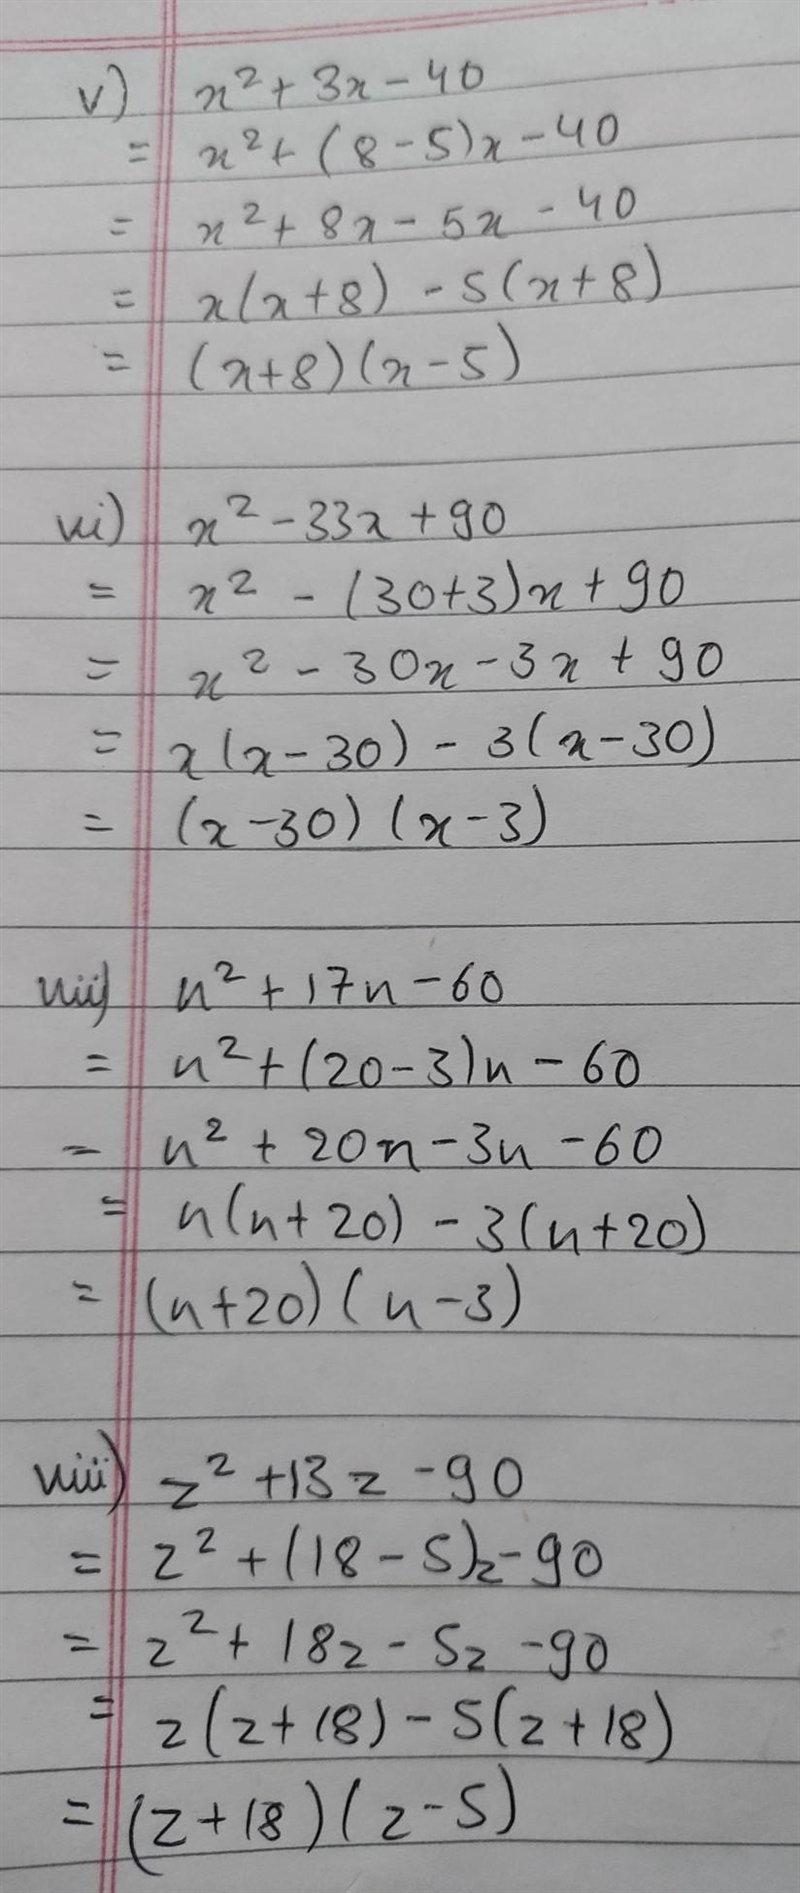 v) x² + 3x - 40
= x² + (8 - 5)x - 40
= x² + 8x - 5x - 40
= x(x + 8) - 5(x + 8)
= (x+8)(x - 5)
vi) x² - 33x + 90
= x² - (30+3)x + 90
= x² - 30x - 3x + 90
= x(x - 30) - 3(x - 30)
= (x - 30)(x - 3)
vii) n² + 17n - 60
= n² + (20 - 3)n - 60
= n² + 20n - 3n - 60
= n(n + 20) - 3(n + 20)
= (n+20)(n - 3)
viii) z² + 13z - 90
= z² + (18 - 5)z - 90
= z² + 18z - 5z - 90
= z(z + 18) - 5(z + 18)
= (z + 18)(z - 5)